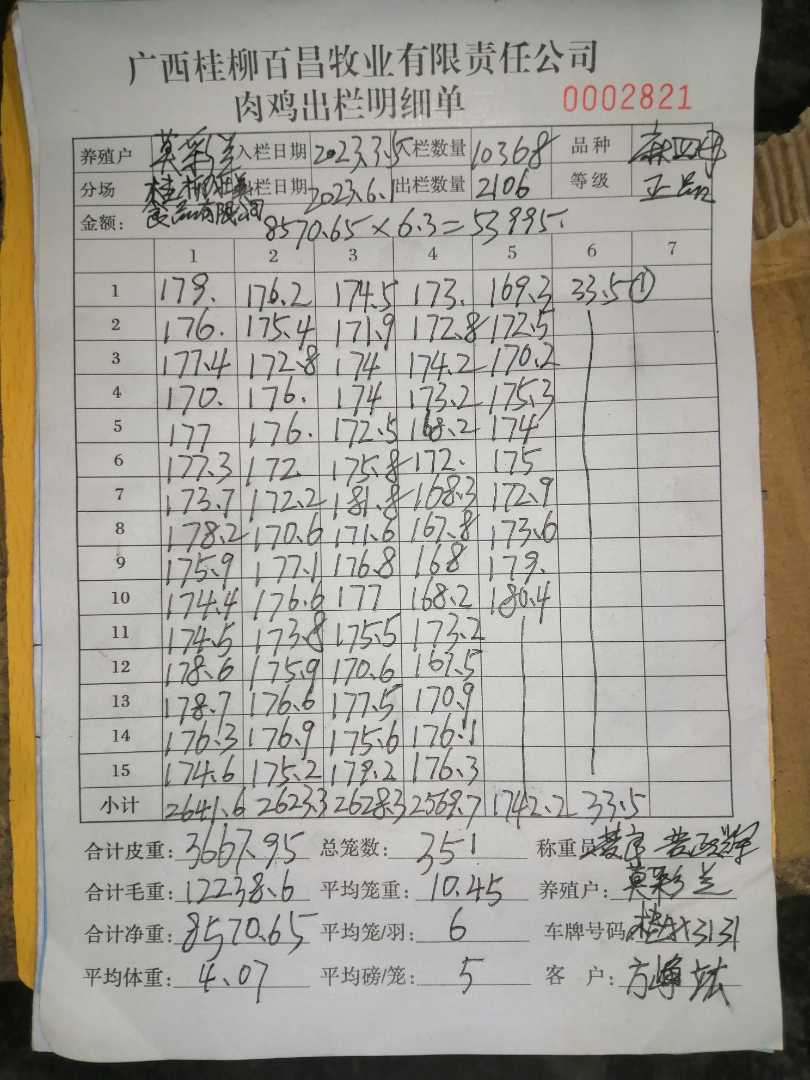 广西桂柳百昌牧业有限责任公司
肉鸡出栏明细单 0002821
养殖户 莫彩兰 入栏日期 2023.3.5 入栏数量 10368 品种
分场 桂柳 出栏日期 2023.6.1 出栏数量 2106 等级 正品
食品有限公司
金额: 8570.65×6.3=53995.
1 2 3 4 5 6 7
1 179. 176.2 174.5 173. 169.3 33.5①
2 176. 175.4 171.9 172.8 172.5
3 177.4 172.8 174 174.2 170.2
4 170. 176. 174 173.2 175.3
5 177 176. 172.5 168.2 174
6 177.3 172 175.8 172. 175
7 173.7 172.2 181.8 168.3 172.9
8 178.2 170.6 171.6 167.8 173.6
9 175.9 177.1 176.8 168 179.
10 174.4 176.6 177 168.2 180.4
11 174.5 173.8 175.5 173.2
12 178.6 175.9 170.6 167.5
13 178.7 176.6 177.5 170.9
14 176.3 176.9 175.6 176.1
15 174.6 175.2 179.2 176.3
小计 2641.6 2623.3 2628.3 2569.7 1742.2 33.5
合计皮重: 3667.95 总笼数: 351 称重员
合计毛重: 12238.6 平均笼重: 10.45 养殖户: 莫彩兰
合计净重: 8570.65 平均笼/羽: 6 车牌号码
平均体重: 4.07 平均磅/笼: 5 客 户: